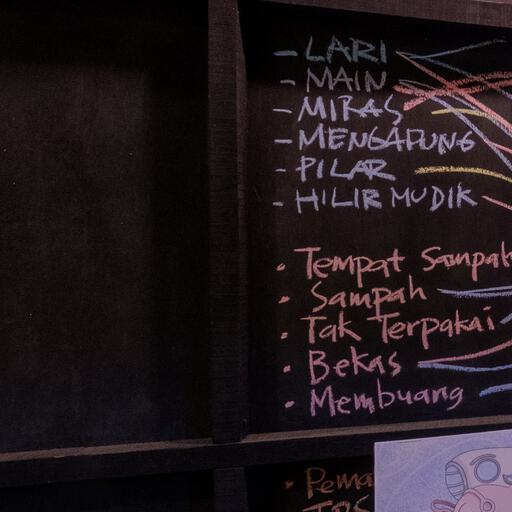 - LARI
- MAIN
- MIRAS
- MENGAPUNG
- PILAR
- HILIR MUDIK
• Tempat Sampah
• Sampah
• Tak Terpakai
• Bekas
• Membuang
• Pema
TPS